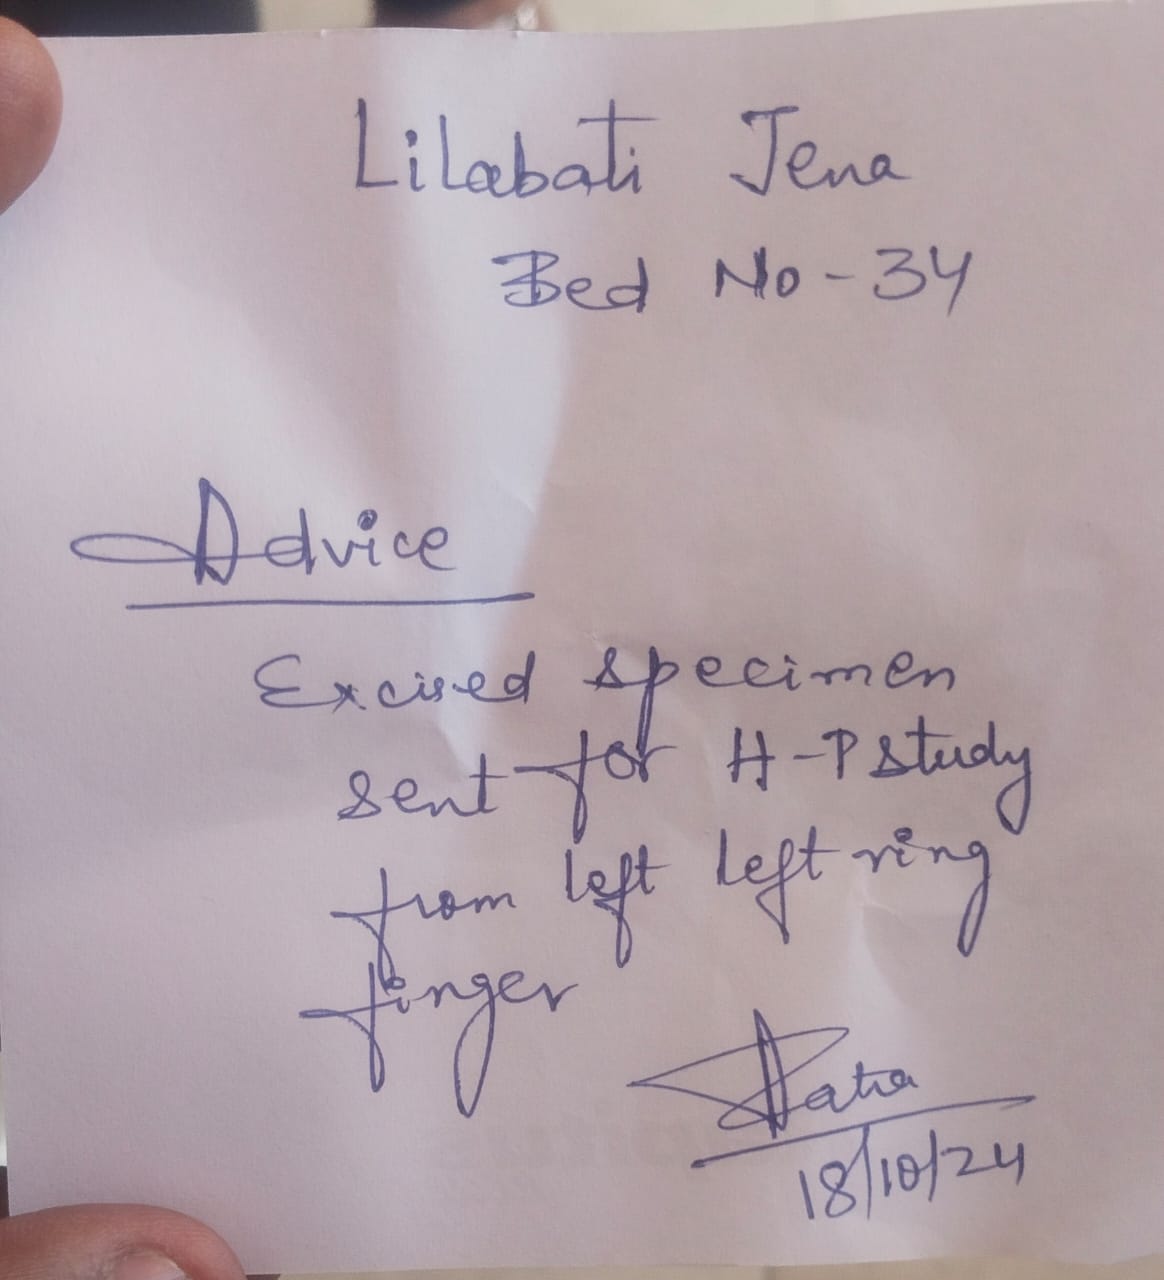 Lilabati Jena
Bed No-34
Advice
Excised specimen
sent for H-P study
from left left ring
finger
18/10/24